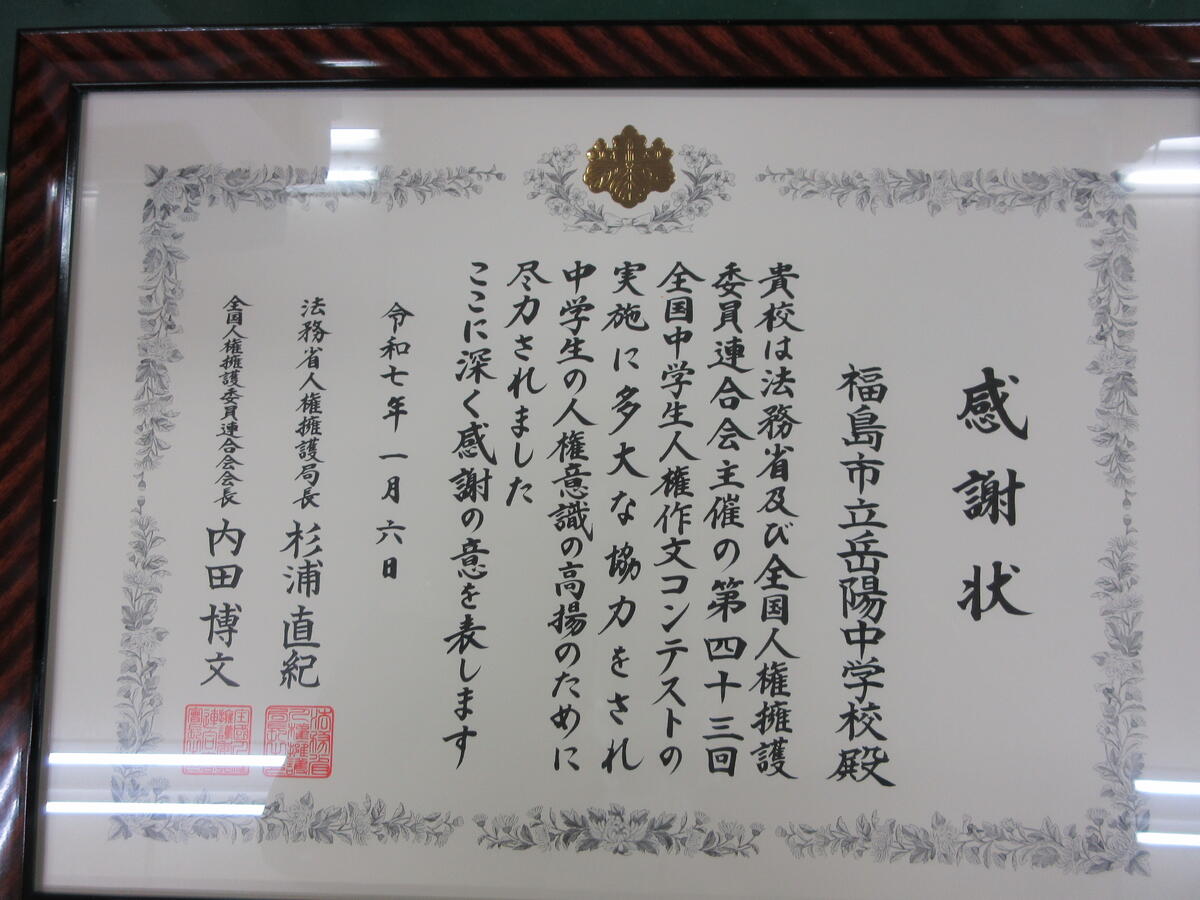 感謝状
福島市立岳陽中学校殿
貴校は法務省及び全国人権擁護
委員連合会主催の第四十三回
全国中学生人権作文コンテストの
実施に多大な協力をされ
中学生の人権意識の高揚のために
尽力されました
ここに深く感謝の意を表します
令和七年一月六日
法務省人権擁護局長 杉浦直紀
全国人権擁護委員連合会会長 内田博文